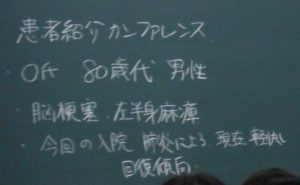 患者紹介カンファレンス
・Oft 80歳代 男性
・脳梗塞 左半身麻痺
・今回の入院 肺炎による 現在 軽快し
回復傾向